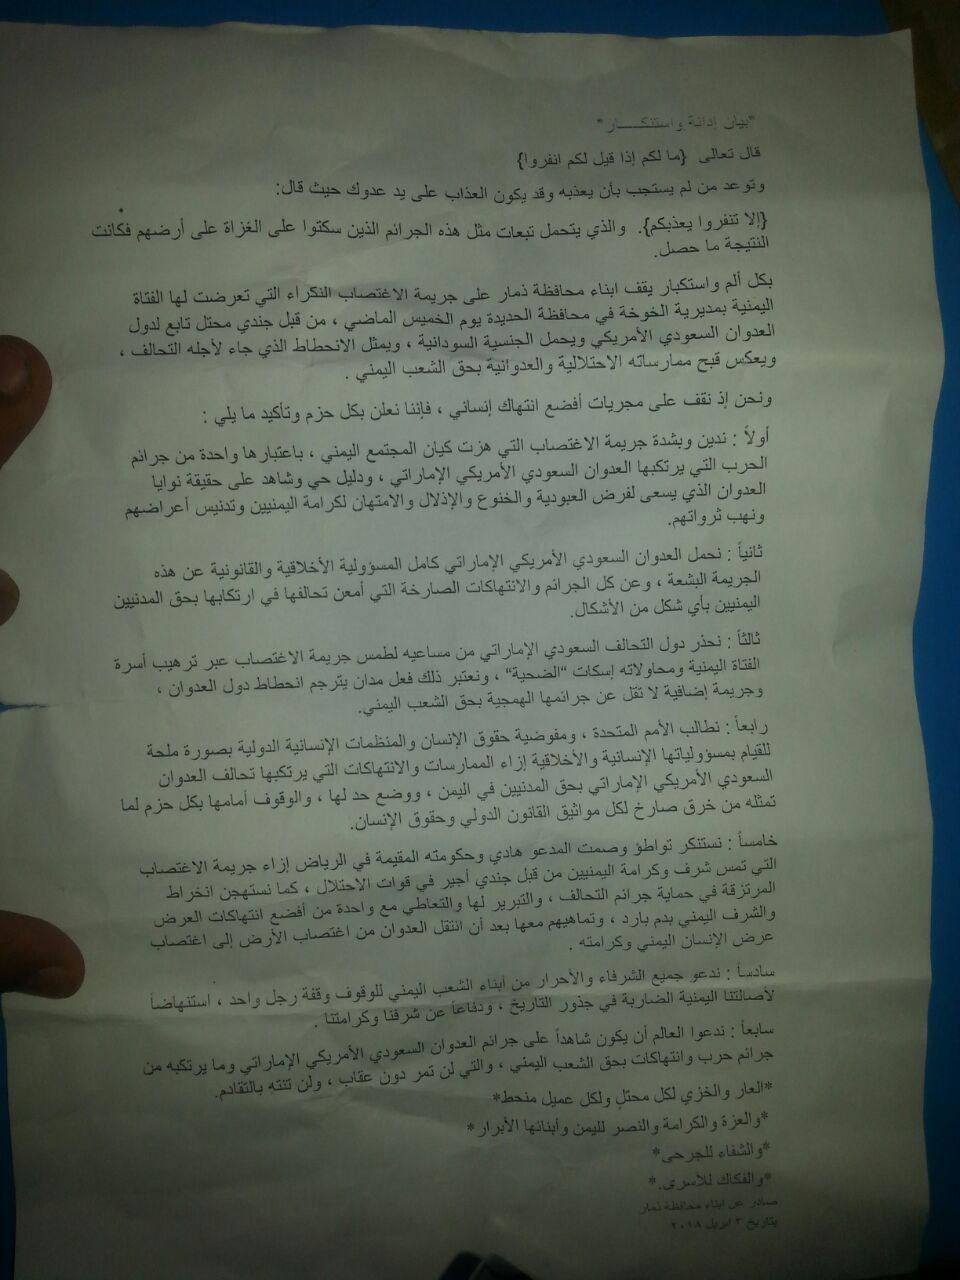 *بيان إدانة واستنكـــــــار*
قال تعالى {ما لكم إذا قيل لكم انفروا}
وتوعد من لم يستجب بأن يعذبه وقد يكون العذاب على يد عدوك حيث قال:
{إلا تنفروا يعذبكم}. والذي يتحمل تبعات مثل هذه الجرائم الذين سكتوا على الغزاة على أرضهم فكانت
النتيجة ما حصل.
بكل ألم واستكبار يقف ابناء محافظة ذمار على جريمة الاغتصاب النكراء التي تعرضت لها الفتاة
اليمنية بمديرية الخوخة في محافظة الحديدة يوم الخميس الماضي ، من قبل جندي محتل تابع لدول
العدوان السعودي الأمريكي ويحمل الجنسية السودانية ، ويمثل الانحطاط الذي جاء لأجله التحالف ،
ويعكس قبح ممارساته الاحتلالية والعدوانية بحق الشعب اليمني .
ونحن إذ نقف على مجريات أفضع انتهاك إنساني ، فإننا نعلن بكل حزم وتأكيد ما يلي :
أولاً : ندين وبشدة جريمة الاغتصاب التي هزت كيان المجتمع اليمني ، باعتبارها واحدة من جرائم
الحرب التي يرتكبها العدوان السعودي الأمريكي الإماراتي ، ودليل حي وشاهد على حقيقة نوايا
العدوان الذي يسعى لفرض العبودية والخنوع والإذلال والامتهان لكرامة اليمنيين وتدنيس أعراضهم
ونهب ثرواتهم.
ثانياً : نحمل العدوان السعودي الأمريكي الإماراتي كامل المسؤولية الأخلاقية والقانونية عن هذه
الجريمة البشعة ، وعن كل الجرائم والانتهاكات الصارخة التي أمعن تحالفها في ارتكابها بحق المدنيين
اليمنيين بأي شكل من الأشكال.
ثالثاً : نحذر دول التحالف السعودي الإماراتي من مساعيه لطمس جريمة الاغتصاب عبر ترهيب أسرة
الفتاة اليمنية ومحاولاته إسكات "الضحية" ، ونعتبر ذلك فعل مدان يترجم انحطاط دول العدوان ،
وجريمة إضافية لا تقل عن جرائمها الهمجية بحق الشعب اليمني.
رابعاً : نطالب الأمم المتحدة ، ومفوضية حقوق الإنسان والمنظمات الإنسانية الدولية بصورة ملحة
للقيام بمسؤولياتها الإنسانية والأخلاقية إزاء الممارسات والانتهاكات التي يرتكبها تحالف العدوان
السعودي الأمريكي الإماراتي بحق المدنيين في اليمن ، ووضع حد لها ، والوقوف أمامها بكل حزم لما
تمثله من خرق صارخ لكل مواثيق القانون الدولي وحقوق الإنسان.
خامساً : نستنكر تواطؤ وصمت المدعو هادي وحكومته المقيمة في الرياض إزاء جريمة الاغتصاب
التي تمس شرف وكرامة اليمنيين من قبل جندي أجير في قوات الاحتلال ، كما نستهجن انخراط
المرتزقة في حماية جرائم التحالف ، والتبرير لها والتعاطي مع واحدة من أفضع انتهاكات العرض
والشرف اليمني بدم بارد ، وتماهيهم معها بعد أن انتقل العدوان من اغتصاب الأرض إلى اغتصاب
عرض الإنسان اليمني وكرامته .
سادساً : ندعو جميع الشرفاء والأحرار من أبناء الشعب اليمني للوقوف وقفة رجل واحد ، استنهاضاً
لأصالتنا اليمنية الضاربة في جذور التاريخ ، ودفاعاً عن شرفنا وكرامتنا .
سابعاً : ندعوا العالم أن يكون شاهداً على جرائم العدوان السعودي الأمريكي الإماراتي وما يرتكبه من
جرائم حرب وانتهاكات بحق الشعب اليمني ، والتي لن تمر دون عقاب ، ولن تنتهِ بالتقادم.
*العار والخزي لكل محتل ولكل عميل منحط*
*والعزة والكرامة والنصر لليمن وأبنائها الأبرار*
*والشفاء للجرحى*
*والفكاك للأسرى.*
صادر عن ابناء محافظة ذمار
بتاريخ ٢ ابريل ٢٠١٨